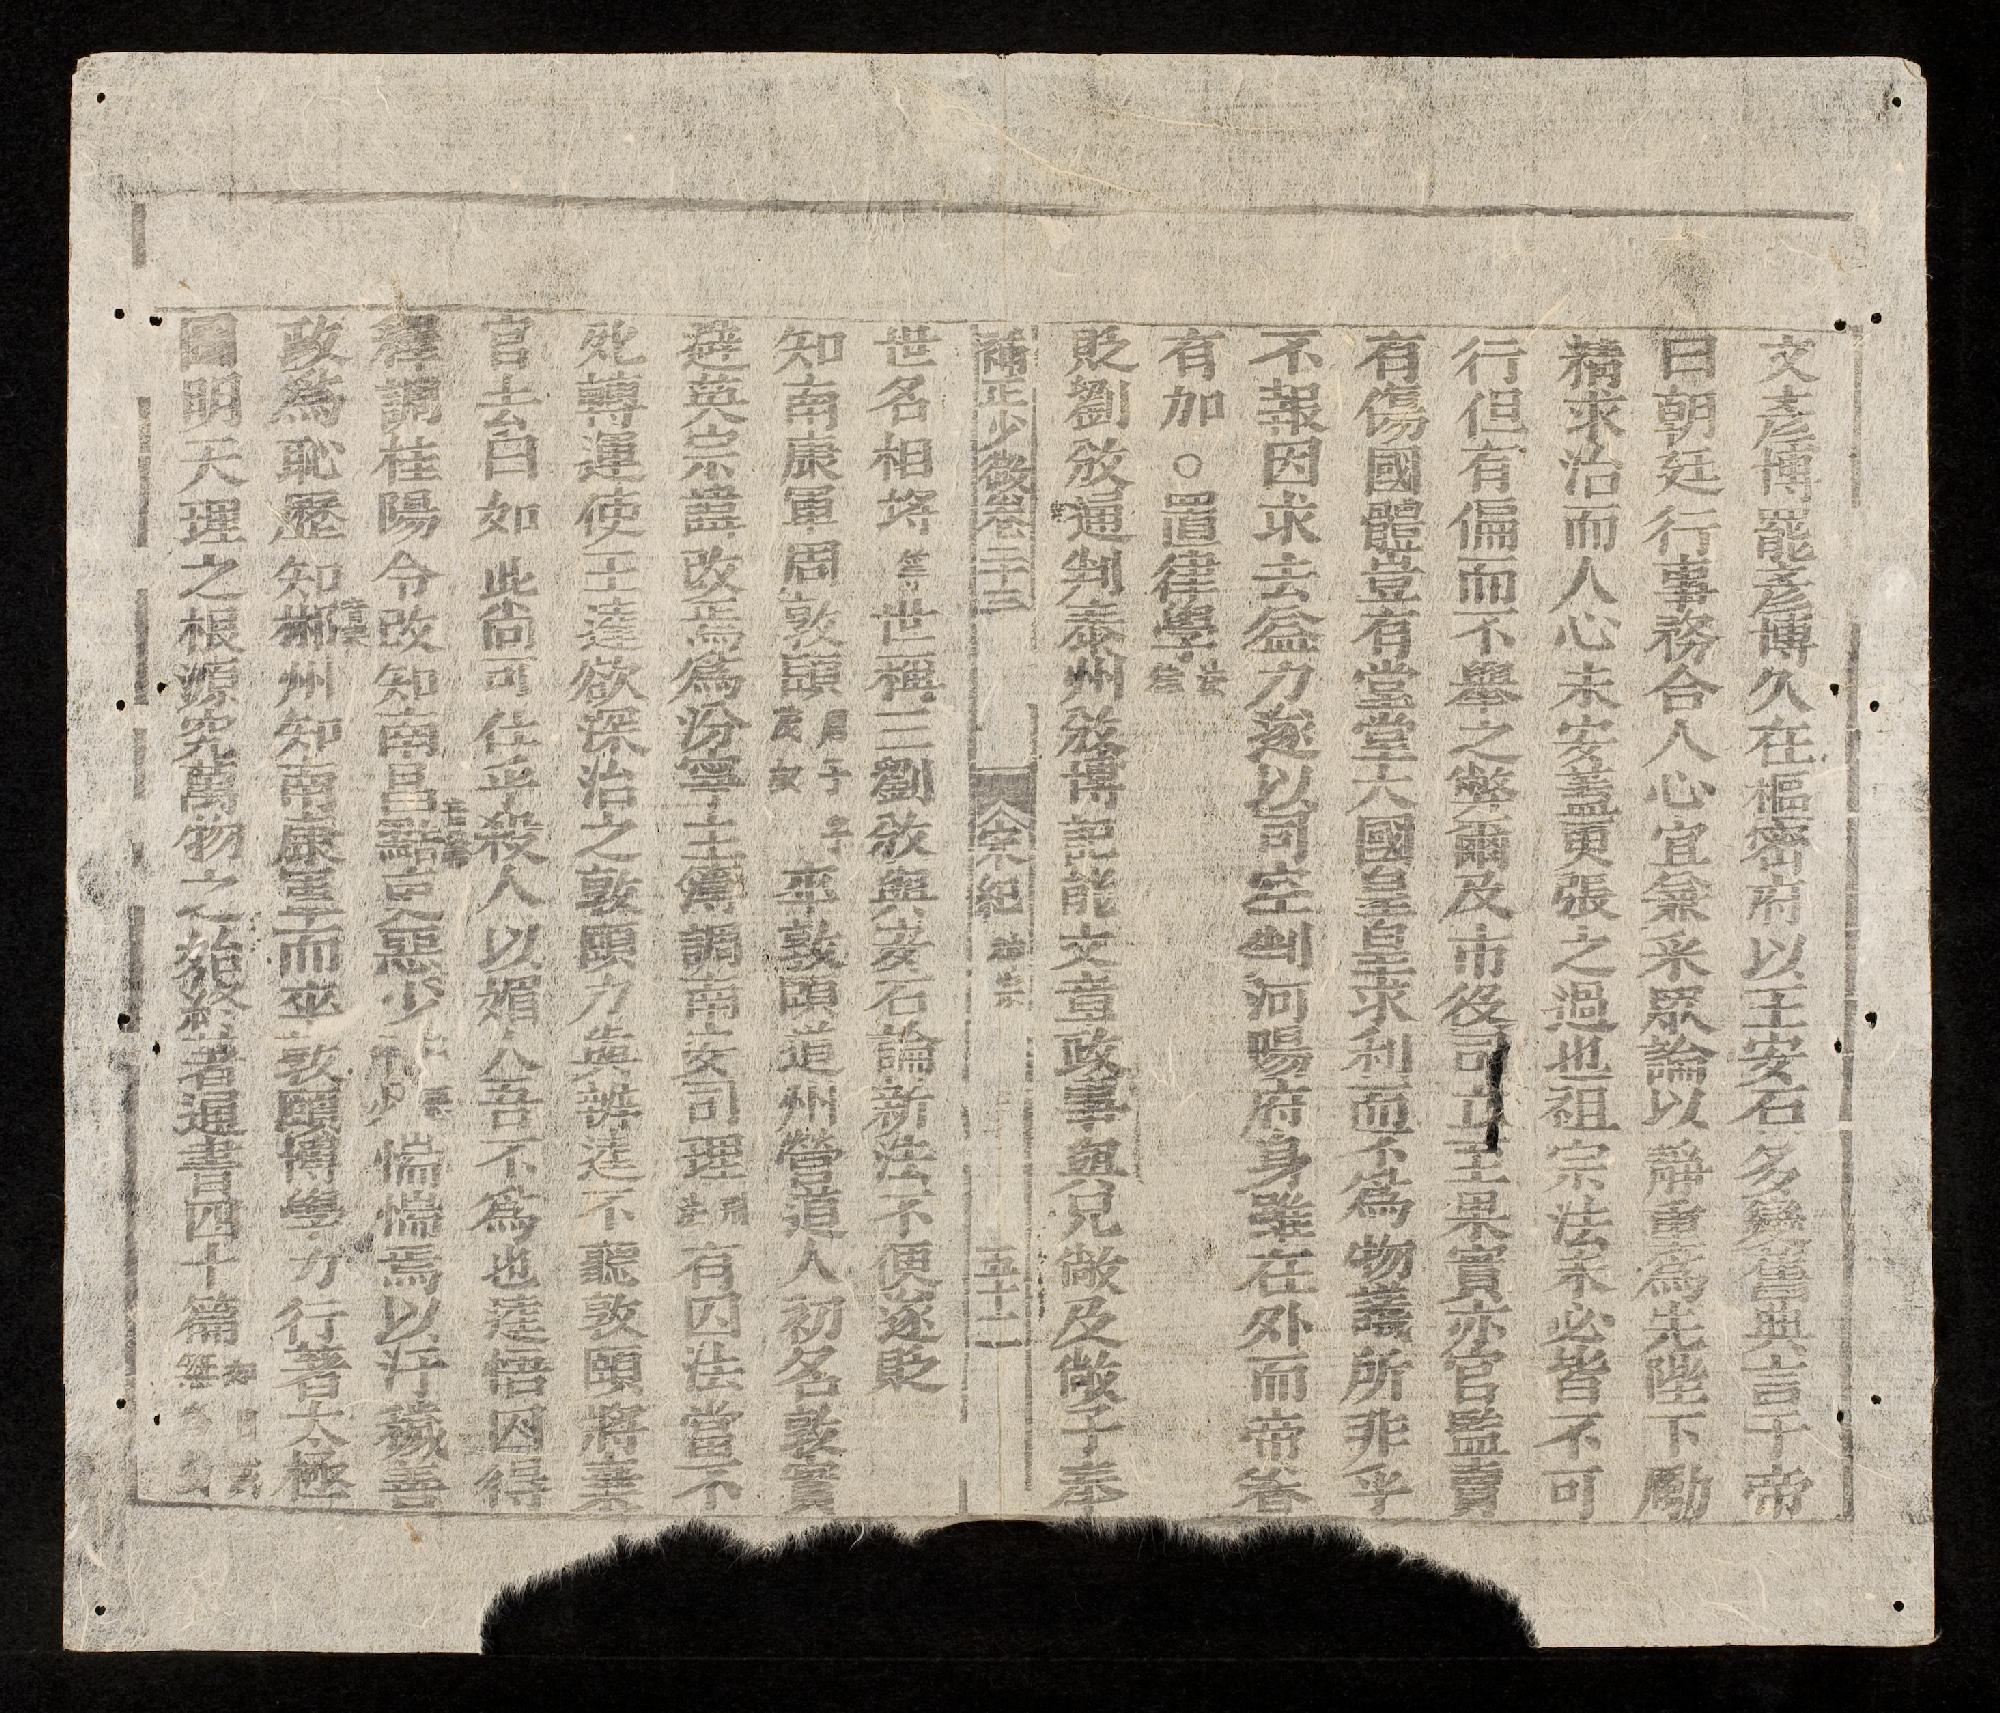 文彥博罷彥博久在樞密府以王安石多變舊典言于帝
曰朝廷行事務合人心宜兼采眾論以靜重為先陛下勵
精求治而人心未安蓋更張之過也祖宗法未必皆不可
行但有偏而不舉之弊爾及市役司立至果實亦官監賣
有傷國體豈有堂堂大國皇皇求利而不為物議所非乎
不報因求去益力遂以司空判河陽府身雖在外而帝眷
有加○置律學
貶劉攽通判泰州攽博記能文章政事與兄敞及敞子奉
補正少微卷二十三 宋紀 神宗 五十二
世名相埒等世稱三劉攽與安石論新法不便遂貶
知南康軍周敦頤卒敦頤道州營道人初名敦實
避英宗諱改焉為汾寧主簿調南安司理有囚法當不
死轉運使王逵欲深治之敦頤力與辨逵不聽敦頤將棄
官去曰如此尚可仕乎殺人以媚人吾不為也逵悟囚得
釋調桂陽令改知南昌黠吏惡少惴惴焉以汙穢善
政為恥歷知郴州知南康軍而卒敦頤博學力行著太極
圖明天理之根源究萬物之始終著通書四十篇